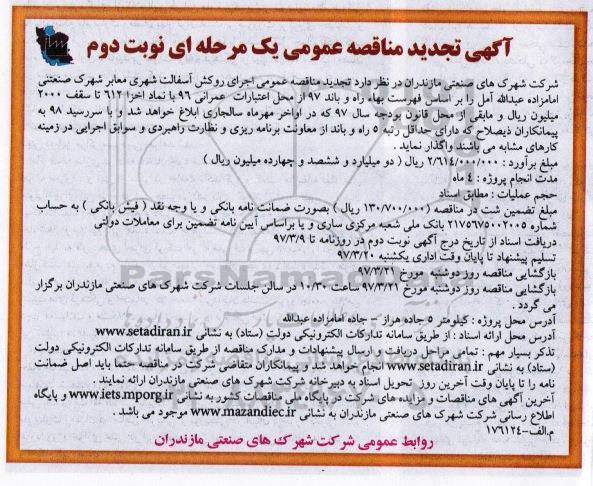 آگهی تجدید مناقصه عمومی یک مرحله ای نوبت دوم
شرکت شهرک های صنعتی مازندران در نظر دارد تجدید مناقصه عمومی اجرای روکش آسفالت شهری معابر شهرک صنعتی
امامزاده عبدالله آمل را بر اساس فهرست بهاء راه و باند ۹۷ از محل اعتبارات عمرانی ۹۶ با نماد اخزا ۶۱۲ تا سقف ۲۰۰۰
میلیون ریال و مابقی از محل قانون بودجه سال ۹۷ که در اواخر مهرماه سالجاری ابلاغ خواهد شد و با سررسید ۹۸ به
پیمانکاران ذیصلاح که دارای حداقل رتبه ۵ راه و باند از معاونت برنامه ریزی و نظارت راهبردی و سوابق اجرایی در زمینه
کارهای مشابه می باشند واگذار نماید .
مبلغ برآورد : ۲/۶۱۴/۰۰۰/۰۰۰ ریال ( دو میلیارد و ششصد و چهارده میلیون ریال )
مدت انجام پروژه : ۴ ماه
حجم عملیات : مطابق اسناد
مبلغ تضمین شت در مناقصه (۱۳۰/۷۰۰/۰۰۰ ریال ) بصورت ضمانت نامه بانکی و یا وجه نقد ( فیش بانکی ) به حساب
شماره ۲۱۷۵۶۷۵۰۰۲۰۰۵ بانک ملی شعبه مرکزی ساری و یا براساس آیین نامه تضمین برای معاملات دولتی
دریافت اسناد از تاریخ درج آگهی نوبت دوم در روزنامه تا ۹۷/۳/۹
تسلیم پیشنهاد تا پایان وقت اداری یکشنبه ۹۷/۳/۲۰
بازگشایی مناقصه روز دوشنبه مورخ ۹۷/۳/۲۱
بازگشایی مناقصه روز دوشنبه مورخ ۹۷/۳/۲۱ ساعت ۱۰/۳۰ در سالن جلسات شرکت شهرک های صنعتی مازندران برگزار
می گردد .
آدرس محل پروژه : کیلومتر ۵ جاده هراز – جاده امامزاده عبدالله
آدرس محل ارائه اسناد : از طریق سامانه تدارکات الکترونیکی دولت (ستاد) به نشانی www.setadiran.ir
تذکر بسیار مهم : تمامی مراحل دریافت و ارسال پیشنهادات و مدارک مناقصه از طریق سامانه تدارکات الکترونیکی دولت
(ستاد) به نشانی www.setadiran.ir انجام خواهد شد و پیمانکاران متقاضی شرکت در مناقصه حتما باید اصل ضمانت
نامه را تا پایان وقت آخرین روز تحویل اسناد به دبیرخانه شرکت شهرک های صنعتی مازندران ارائه نمایند .
آخرین آگهی های مناقصات و مزایده های شرکت در پایگاه ملی مناقصات کشور به نشانی www.iets.mporg.ir و پایگاه
اطلاع رسانی شرکت شهرک های صنعتی مازندران به نشانی www.mazandiec.ir موجود می باشد .
م.الف-۱۷۶۱۲۴
روابط عمومی شرکت شهرک های صنعتی مازندران
ParsNamadData